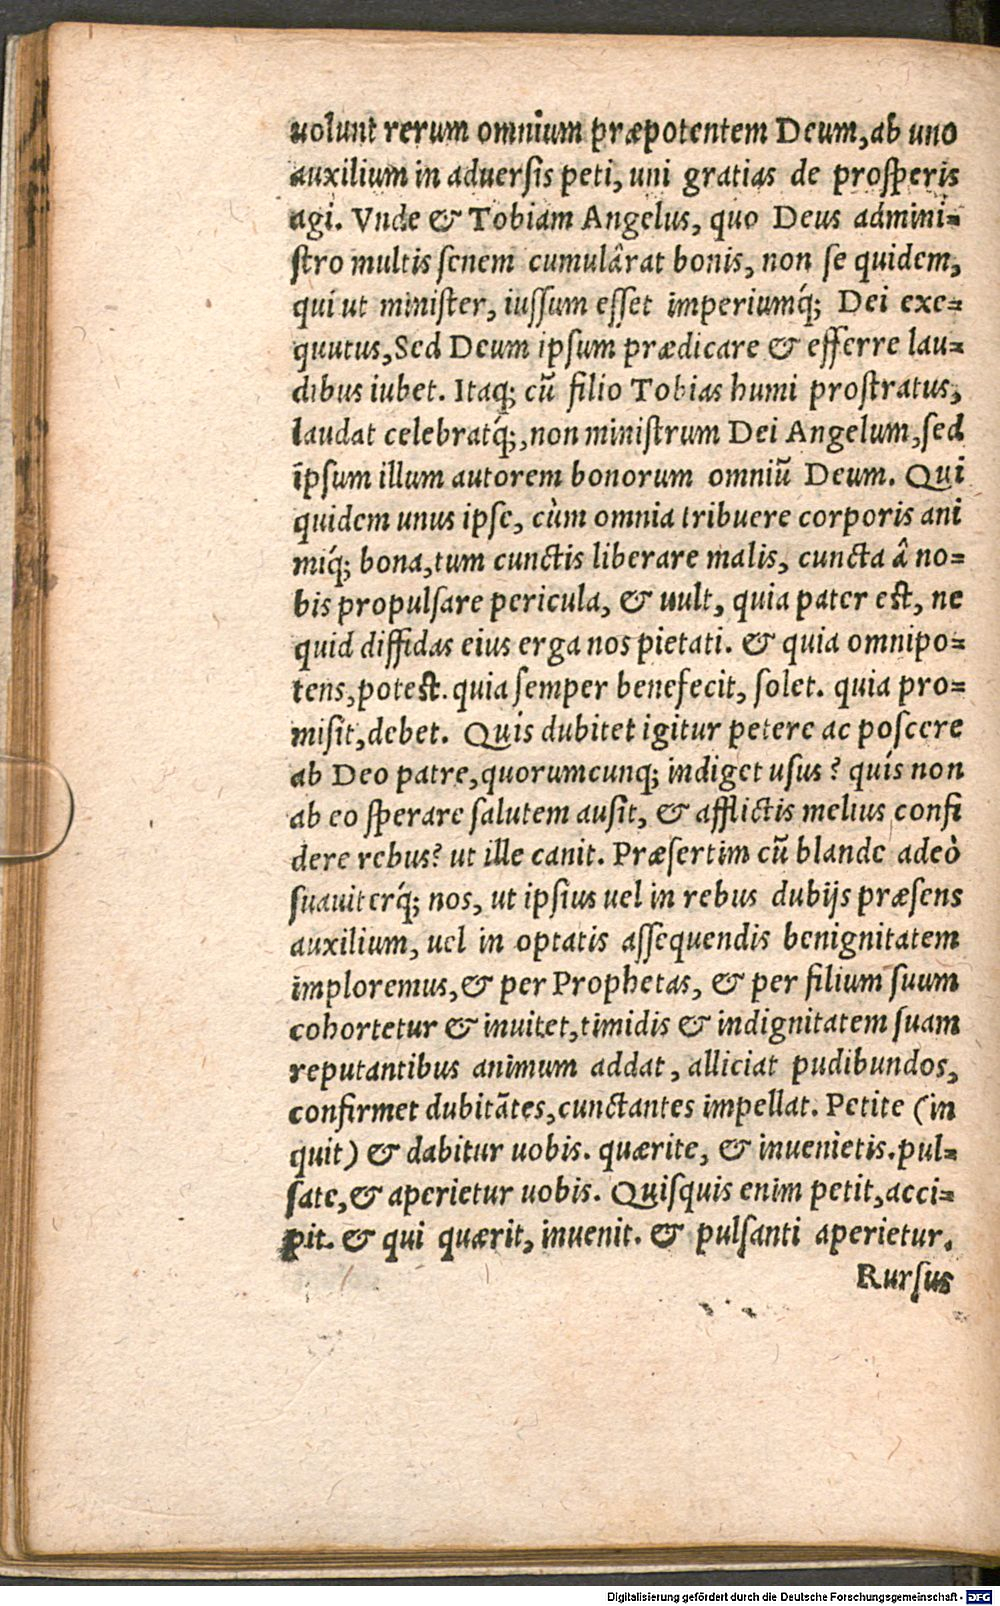 uolunt rerum omnium præpotentem Deum, ab uno
auxilium in aduersis peti, uni gratias de prosperis
agi. Vnde & Tobiam Angelus, quo Deus admini=
stro multis senem cumulârat bonis, non se quidem,
qui ut minister, iussum esset imperiumq́; Dei exe=
quutus, Sed Deum ipsum prædicare & efferre lau=
dibus iubet. Itaq; cũ filio Tobias humi prostratus,
laudat celebratq́;, non ministrum Dei Angelum, sed
ipsum illum autorem bonorum omniũ Deum. Qui
quidem unus ipse, cùm omnia tribuere corporis ani
miq́; bona, tum cunctis liberare malis, cuncta â no=
bis propulsare pericula, & uult, quia pater est, ne
quid diffidas eius erga nos pietati. & quia omnipo=
tens, potest. quia semper benefecit, solet. quia pro=
misit, debet. Quis dubitet igitur petere ac poscere
ab Deo patre, quorumcunq; indiget usus? quis non
ab eo sperare salutem ausit, & afflictis melius confi
dere rebus? ut ille canit. Præsertim cũ blande adeò
suauiterq́; nos, ut ipsius uel in rebus dubijs præsens
auxilium, uel in optatis assequendis benignitatem
imploremus, & per Prophetas, & per filium suum
cohortetur & inuitet, timidis & indignitatem suam
reputantibus animum addat, alliciat pudibundos,
confirmet dubitãtes, cunctantes impellat. Petite (in
quit) & dabitur uobis. quærite, & inuenietis. pul=
sate, & aperietur uobis. Quisquis enim petit, acci=
pit. & qui quærit, inuenit. & pulsanti aperietur.
Rursus
Digitalisierung gefördert durch die Deutsche Forschungsgemeinschaft - DFG